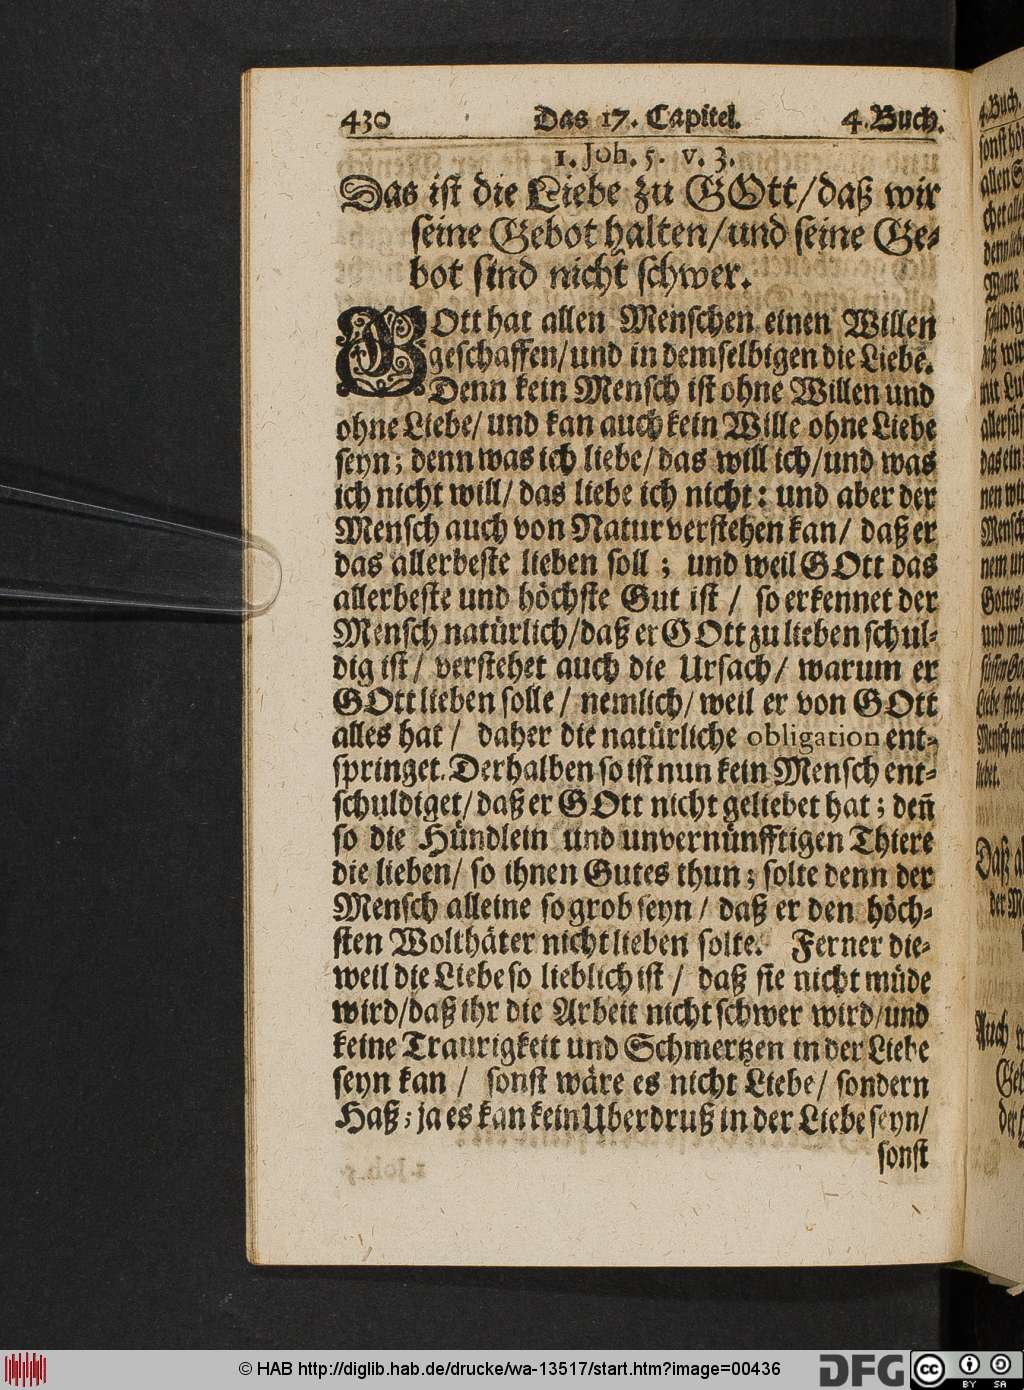 430 Das 17. Capitel. 4. Buch.
1. Joh. 5. v. 3.
Das ist die Liebe zu GOtt/daß wir
seine Gebot halten/und seine Ge-
bot sind nicht schwer.
GOtt hat allen Menschen einen Willen
geschaffen/und in demselbigen die Liebe.
Denn kein Mensch ist ohne Willen und
ohne Liebe/ und kan auch kein Wille ohne Liebe
seyn; denn was ich liebe/ das will ich/und was
ich nicht will/ das liebe ich nicht: und aber der
Mensch auch von Natur verstehen kan/ daß er
das allerbeste lieben soll; und weil GOtt das
allerbeste und höchste Gut ist / so erkennet der
Mensch natürlich/daß er GOtt zu lieben schul-
dig ist/ verstehet auch die Ursach/ warum er
GOtt lieben solle / nemlich/ weil er von GOtt
alles hat / daher die natürliche obligation ent-
springet. Derhalben so ist nun kein Mensch ent-
schuldiget/daß er GOtt nicht geliebet hat; deñ
so die Hündlein und unvernünfftigen Thiere
die lieben/ so ihnen Gutes thun; solte denn der
Mensch alleine so grob seyn / daß er den höch-
sten Wolthäter nicht lieben solte. Ferner die-
weil die Liebe so lieblich ist / daß sie nicht müde
wird/daß ihr die Arbeit nicht schwer wird/und
keine Traurigkeit und Schmertzen in der Liebe
seyn kan / sonst wäre es nicht Liebe/ sondern
Haß; ja es kan kein Uberdruß in der Liebe seyn/
sonst
4. Buch.
© HAB http://diglib.hab.de/drucke/wa-13517/start.htm?image=00436
DFG
cc BY SA